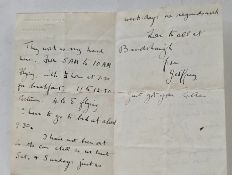 They work us very hard
here. From 5 AM to 10 AM
flying with ½ hour at 7.30
for breakfast. 11 to 12.30
lecture. 4 to 8 flying
I have to go to bed at about
9.30.
I have not been out
in the car
Sat. & Sundays just as
week-days no regards
Love to all at
Geoffrey
Just got your letter